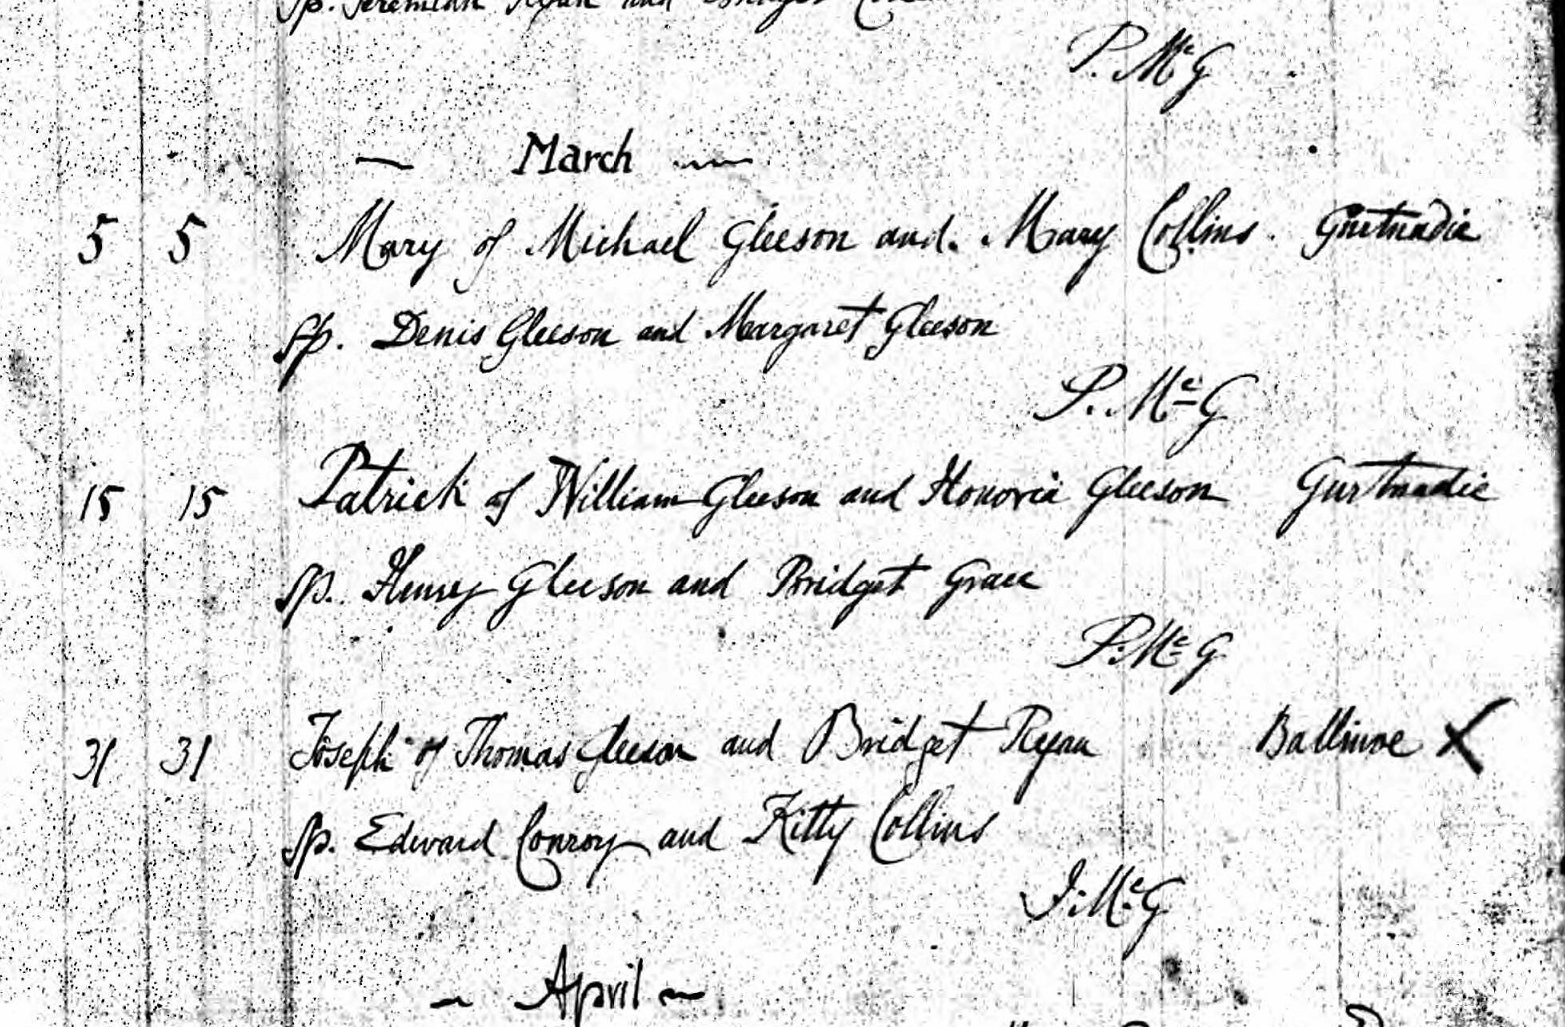 Sp. Jeremiah Ryan and Bridget
P. McG
— March —
5 5 Mary of Michael Gleeson and Mary Collins. Gurtnadie
Sp. Denis Gleeson and Margaret Gleeson
P. McG
15 15 Patrick of William Gleeson and Honoria Gleeson Gurtnadie
Sp. Henry Gleeson and Bridget Grace
P. McG
31 31 Joseph of Thomas Gleeson and Bridget Ryan Ballinoe X
Sp. Edward Conroy and Kitty Collins
J. McG
— April —